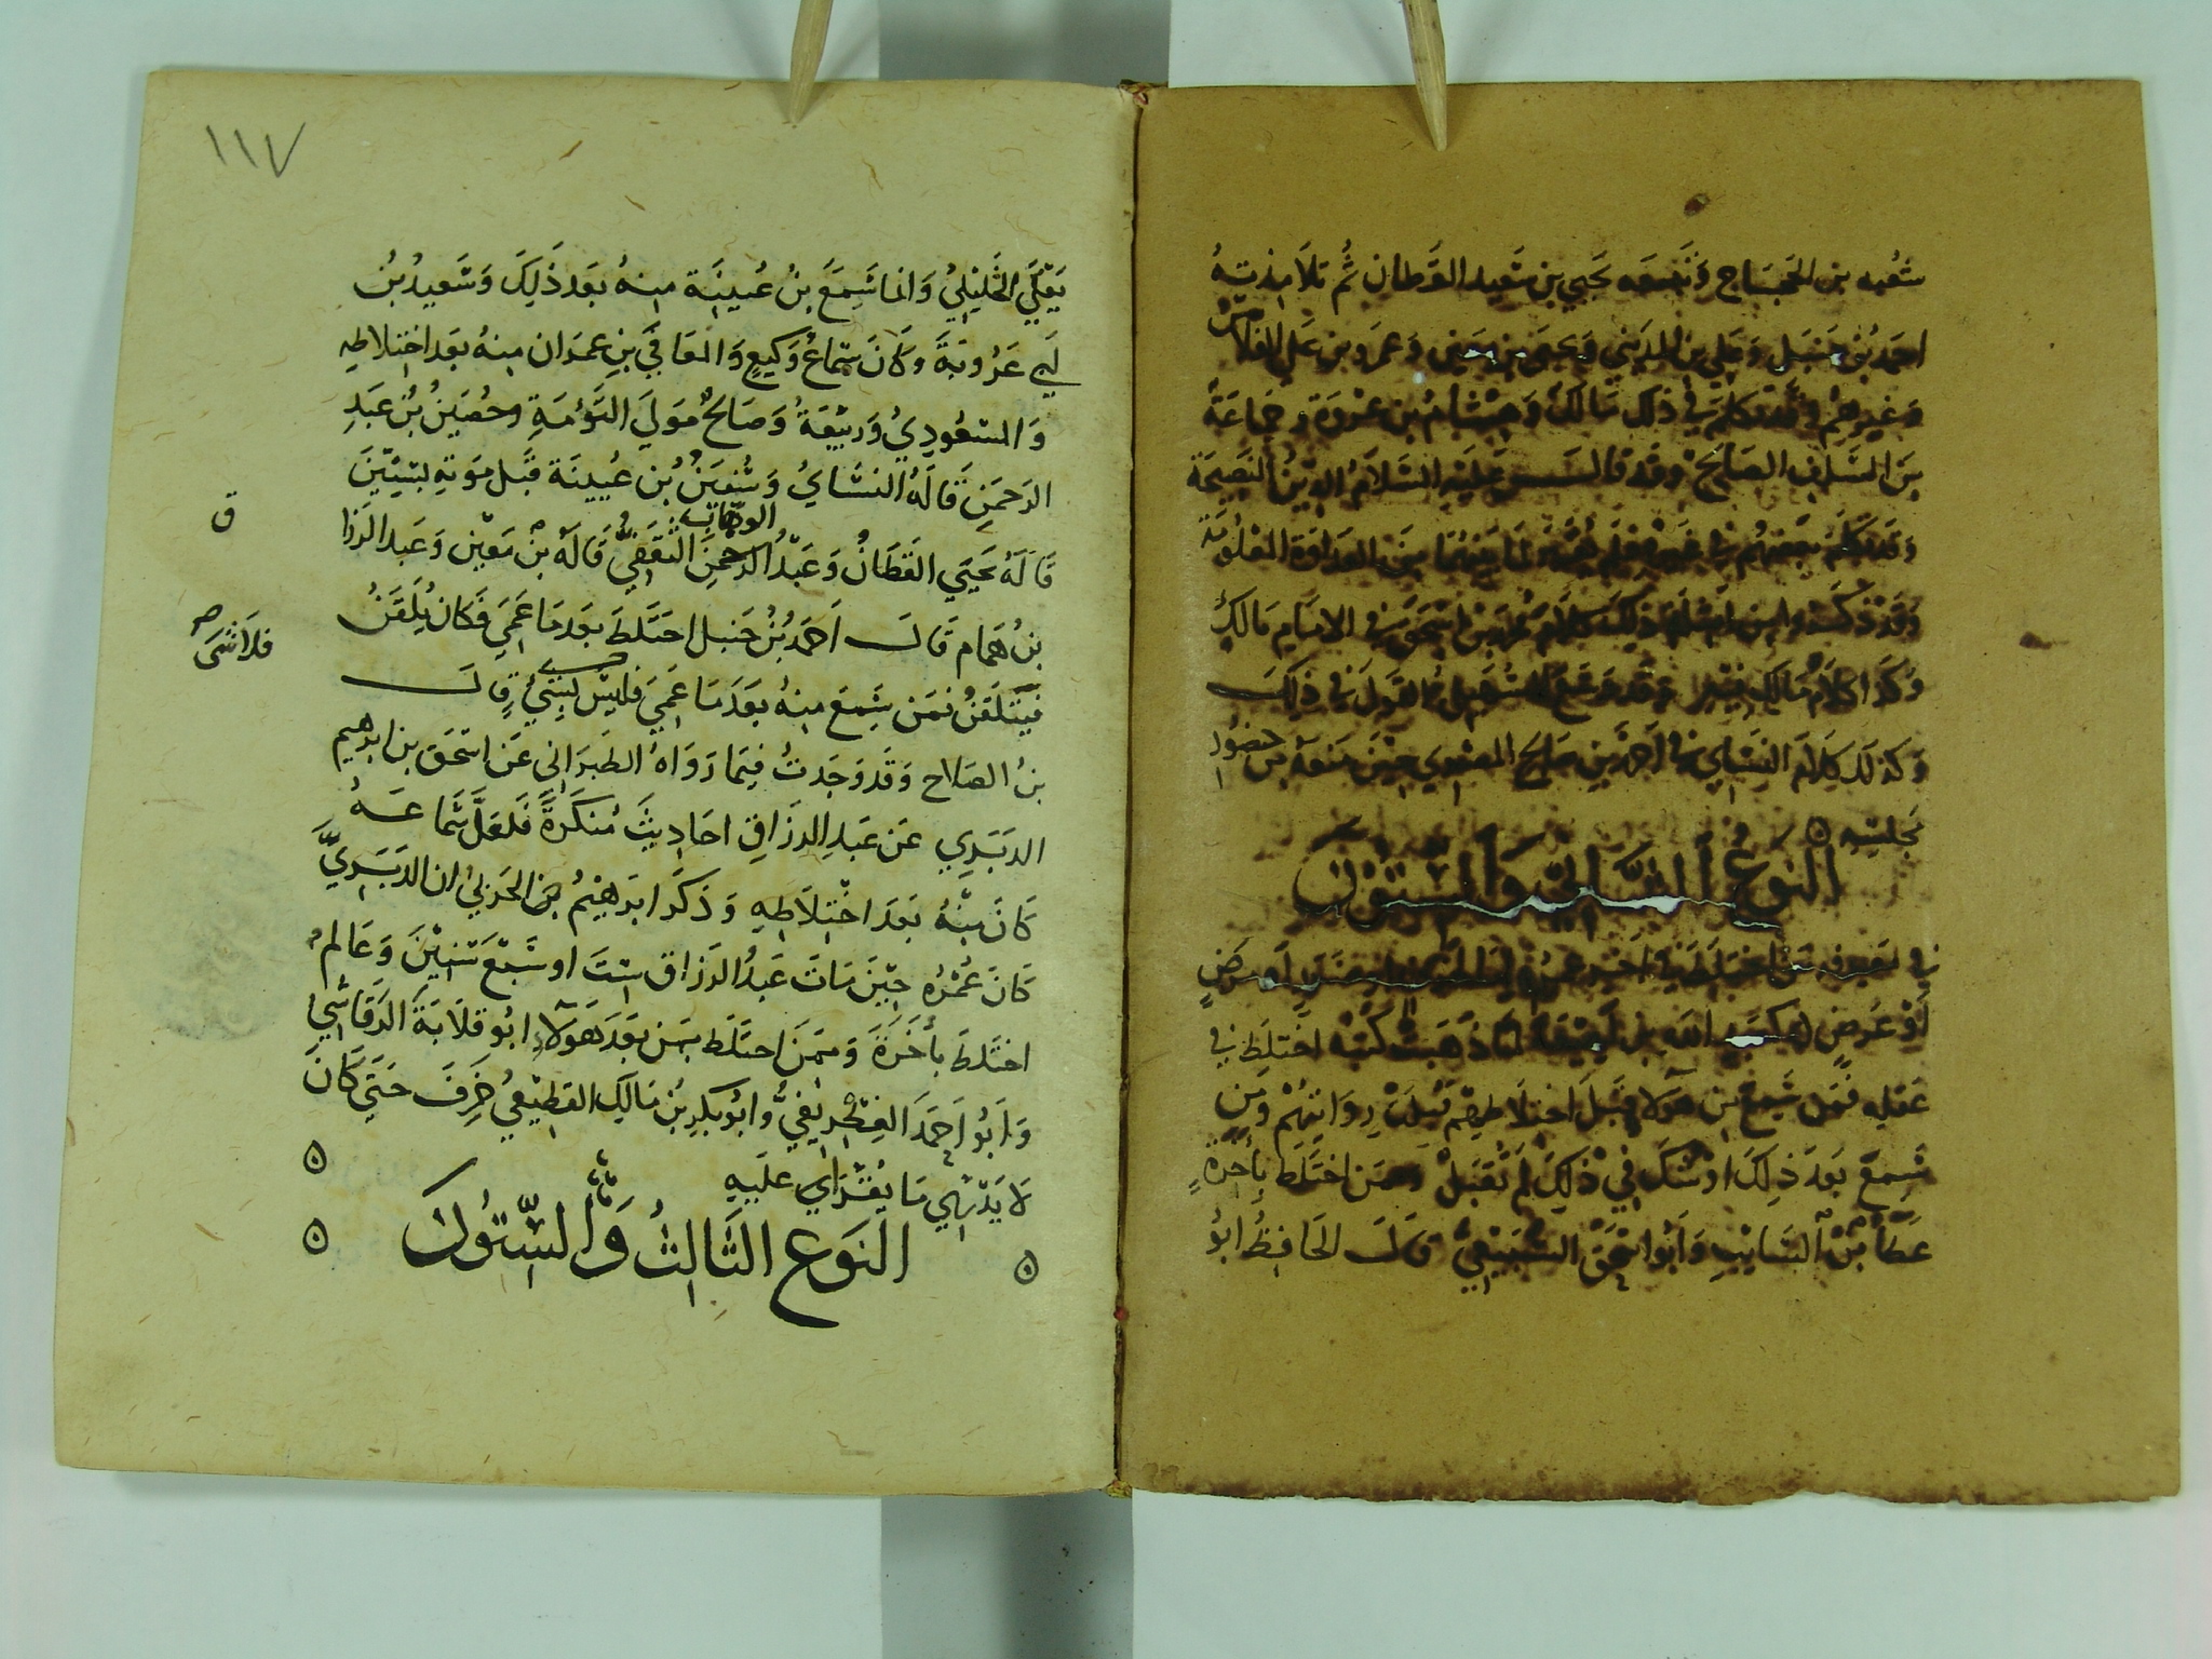 شعبه بن الحجاج وتبعه يحيي بن سعيد القطان ثم تلامذته
احمد بن حنبل وعلي بن المديني ويحيى بن معين وعمرو بن علي الفلاس
وغيرهم وقد تكلم في ذلك مالك وهشام بن عروة وجماعة
من السلف الصالح وقد قال عليه السلام الدين النصيحة
وقد تكلم بعضهم في غيره فلم يعتبر لما بينهما من العداوة المعلومة
وقد ذكرنا من امثلة ذلك كلام محمد بن اسحق في الامام مالك
وكذا كلام مالك فيه وقد وسع السهيلي القول في ذلك
وكذلك كلام النسائي في احمد بن صالح المصري حين منعه من حضور
مجلسه
النوع الثاني والستون
في معرفة من اختلط في اخر عمره اما لخوف او ضرر او مرض
او عرض كعبد الله بن لهيعة لما ذهبت كتبه اختلط في
عقله فمن سمع من هولا قبل اختلاطهم قبلت روايتهم ومن
سمع بعد ذلك او شك في ذلك لم تقبل وممن اختلط بأخرة
عطا بن السايب وابو اسحق السبيعي قال الحافظ ابو
١١٧
يعلي الخليلي وانما سمع بن عيينة منه بعد ذلك وسعيد بن
ابي عروبة وكان سماع وكيع والمعافي بن عمران منه بعد اختلاطه
والمسعودي وربيعة وصالح مولي التؤمة وحصين بن عبد
الرحمن قاله النسائي وسفين بن عيينة قبل موته بسنتين
الوهاب
قاله يحيي القطان وعبد الرحمن الثقفي قاله بن معين وعبد الرزا
ق
بن همام قال احمد بن حنبل اختلط بعد ما عمي فكان يلقن
فيتلقن فمن سمع منه بعد ما عمي فليس بشيء قال
فلا شى
بن الصلاح وقد وجدت فيما رواه الطبراني عن اسحق بن ابرهيم
الدبري عن عبد الرزاق احاديث منكرة فلعل سماعه
كان منه بعد اختلاطه وذكر ابرهيم بن الحربي ان الدبري
كان عمره حين مات عبد الرزاق ست او سبع سنين وعالم
اختلط بأخرة وممن اختلط ممن بعد هولاء ابو قلابة الرقاشي
وابو احمد الغطريفي وابو بكر بن مالك القطيعي خرف حتي كان
لا يدري ما يقرا علىه
النوع الثالث والستون